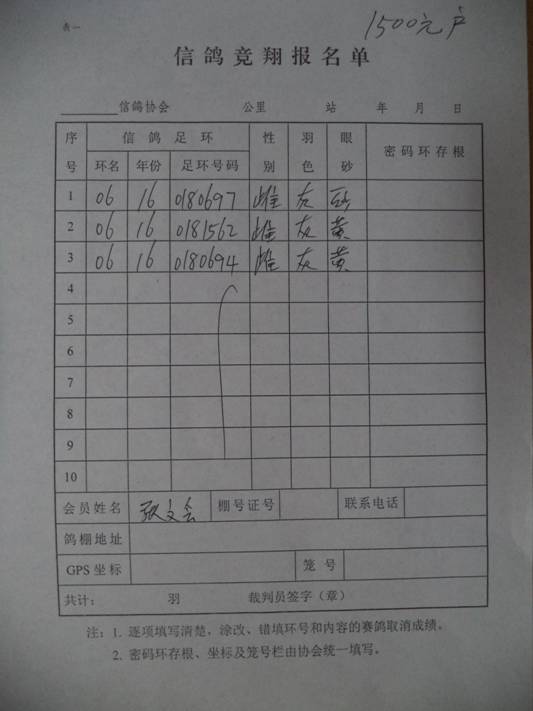 表一
1500元户
信鸽竞翔报名单
信鸽协会 公里 站 年 月 日
序号 信鸽足环 性别 羽色 眼砂 密码环存根
环名 年份 足环号码
1 06 16 0180697 雌 灰 砂
2 06 16 0181562 雌 灰 黄
3 06 16 0180694 雌 灰 黄
4
5
6
7
8
9
10
会员姓名 张文会 棚号证号 联系电话
鸽棚地址
GPS坐标 笼号
共计: 羽 裁判员签字(章)
注:1. 逐项填写清楚,涂改、错填环号和内容的赛鸽取消成绩。
2. 密码环存根、坐标及笼号栏由协会统一填写。